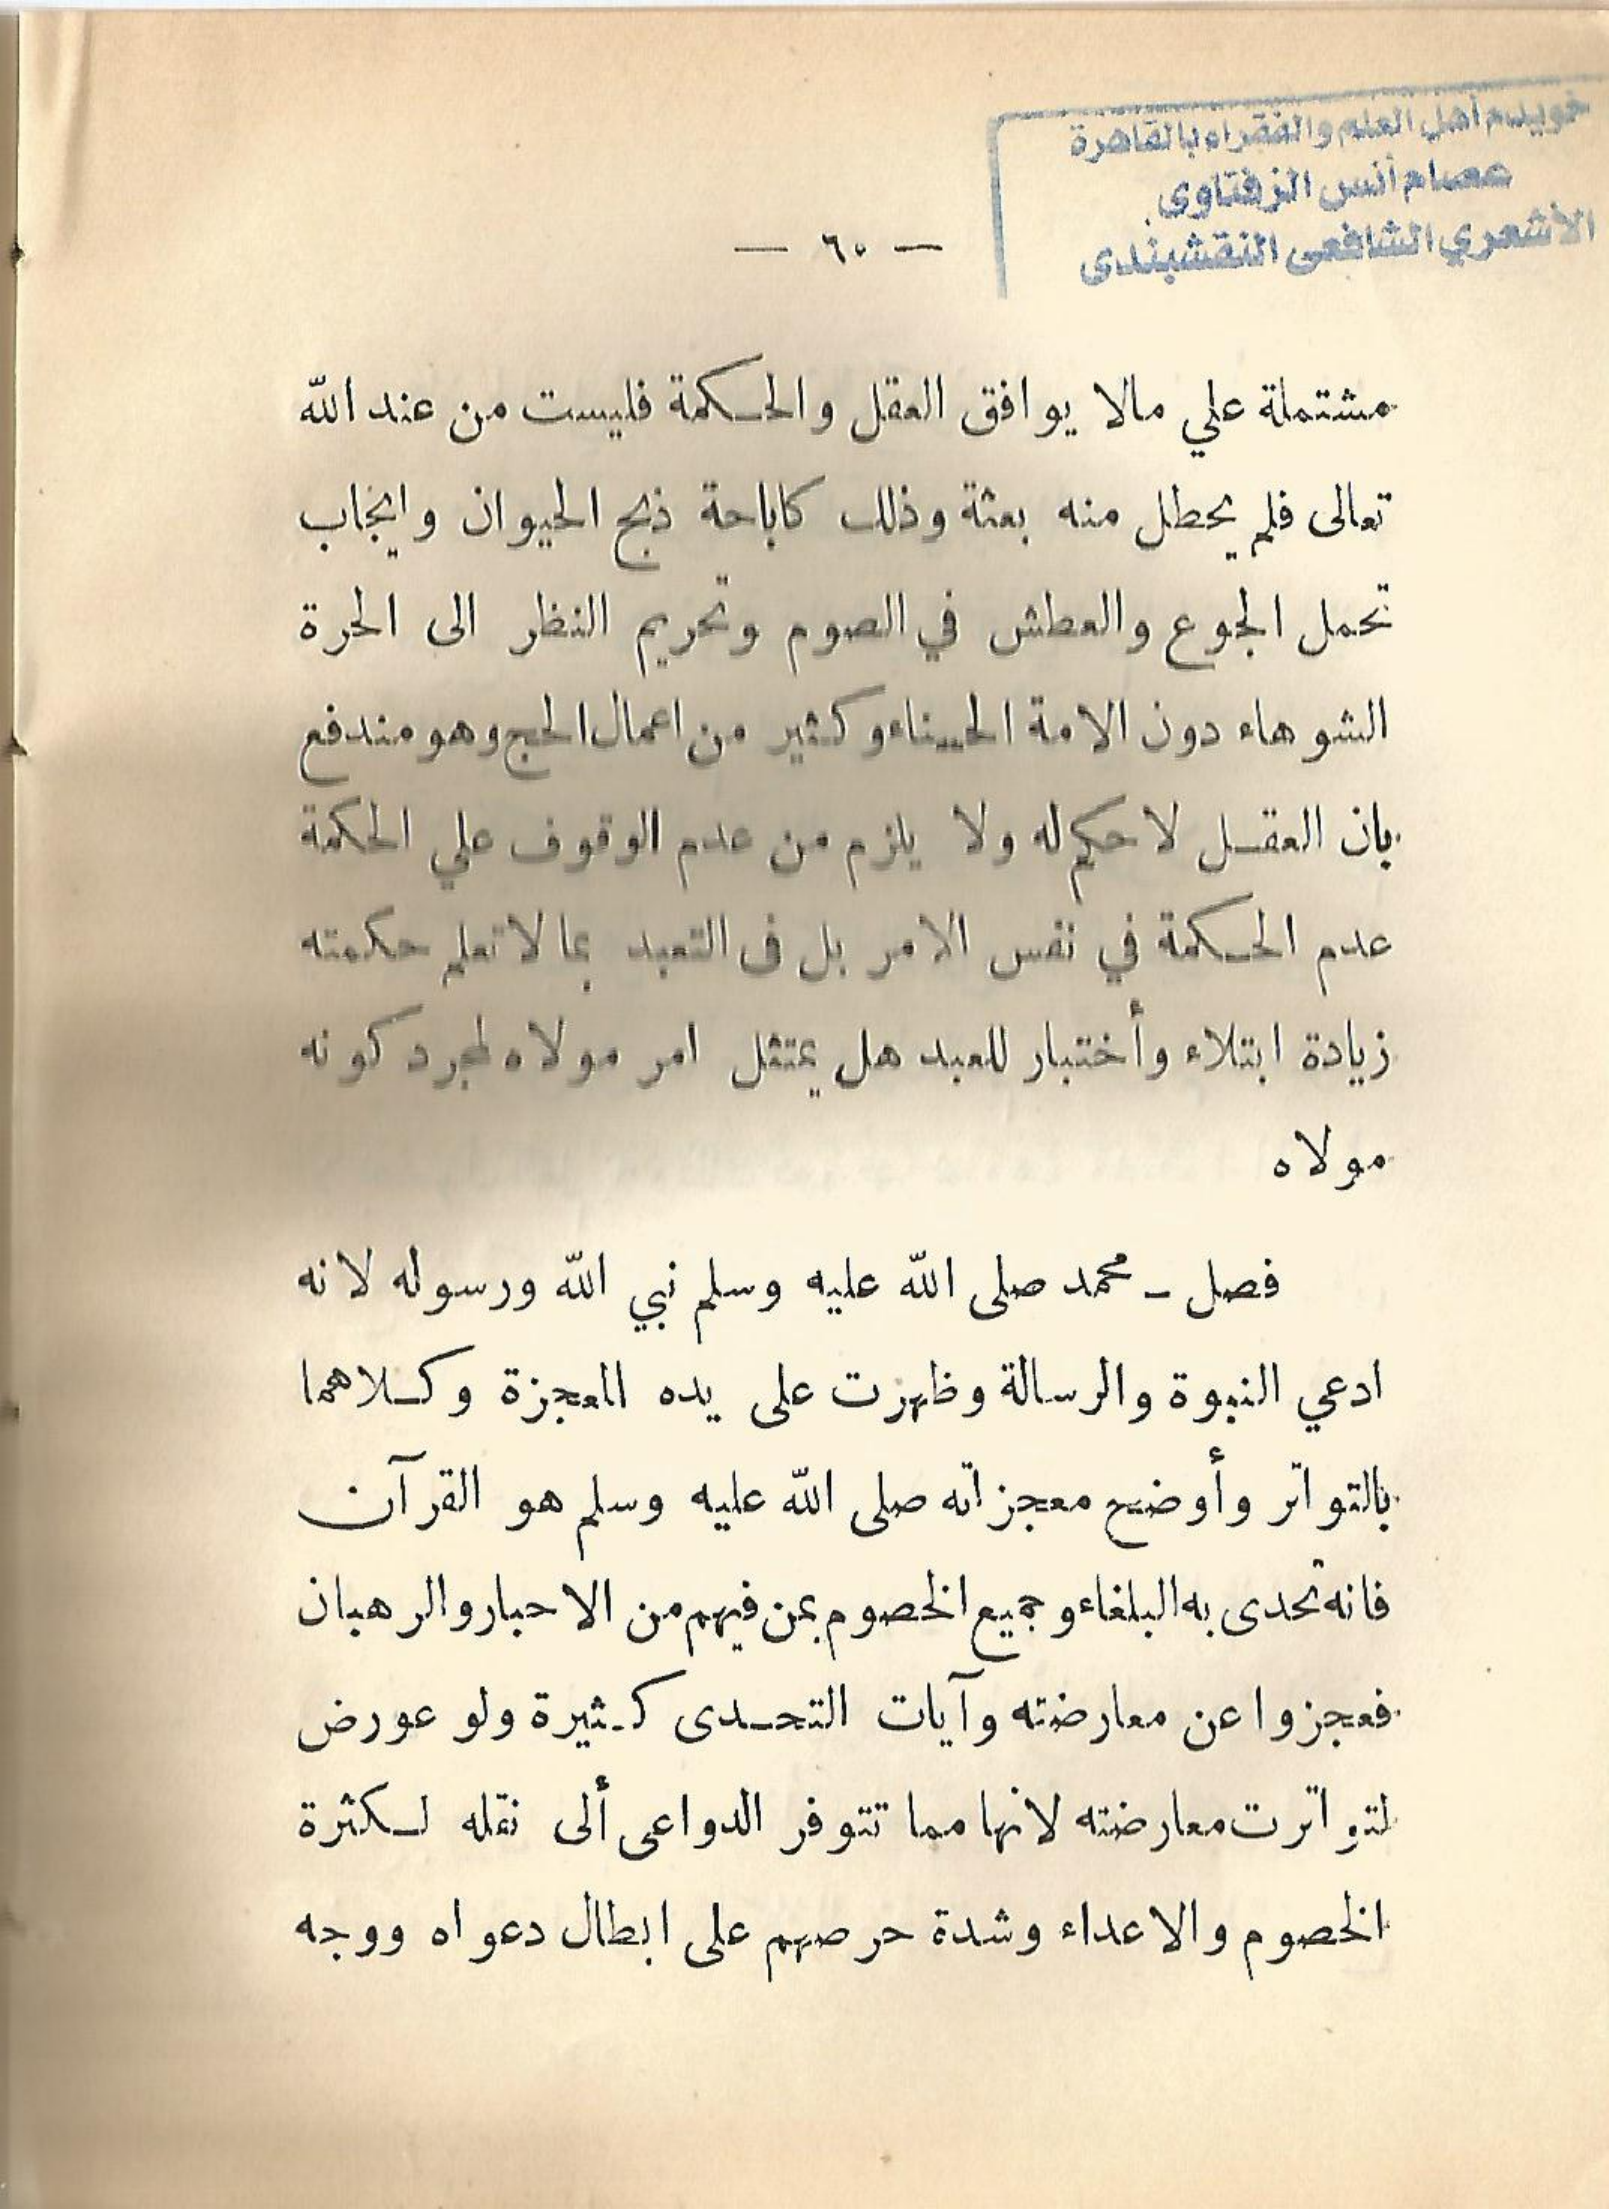 خويدم أهل العلم والفقراء بالقاهرة
عصام أنس الزفتاوى
الأشعري الشافعى النقشبندى
— ٦٠ —
مشتملة علي مالا يوافق العقل والحكمة فليست من عند الله
تعالى فلم يحطل منه بعثة وذلك كاباحة ذبح الحيوان وايجاب
تحمل الجوع والعطش في الصوم وتحريم النظر الى الحرة
الشوهاء دون الامة الحسناء وكثير من اعمال الحج وهو مندفع
بان العقل لا حكم له ولا يلزم من عدم الوقوف علي الحكمة
عدم الحكمة في نفس الامر بل فى التعبد بما لا تعلم حكمته
زيادة ابتلاء وأختبار للعبد هل يمتثل امر مولاه لمجرد كونه
مولاه
فصل – محمد صلى الله عليه وسلم نبي الله ورسوله لانه
ادعي النبوة والرسالة وظهرت على يده المعجزة وكلاهما
بالتواتر وأوضح معجزاته صلى الله عليه وسلم هو القرآن
فانه تحدى به البلغاء وجميع الخصوم بمن فيهم من الاحبار والرهبان
فعجزوا عن معارضته وآيات التحدى كثيرة ولو عورض
لتواترت معارضته لانها مما تتوفر الدواعى ألى نقله لكثرة
الخصوم والاعداء وشدة حرصهم على ابطال دعواه ووجه